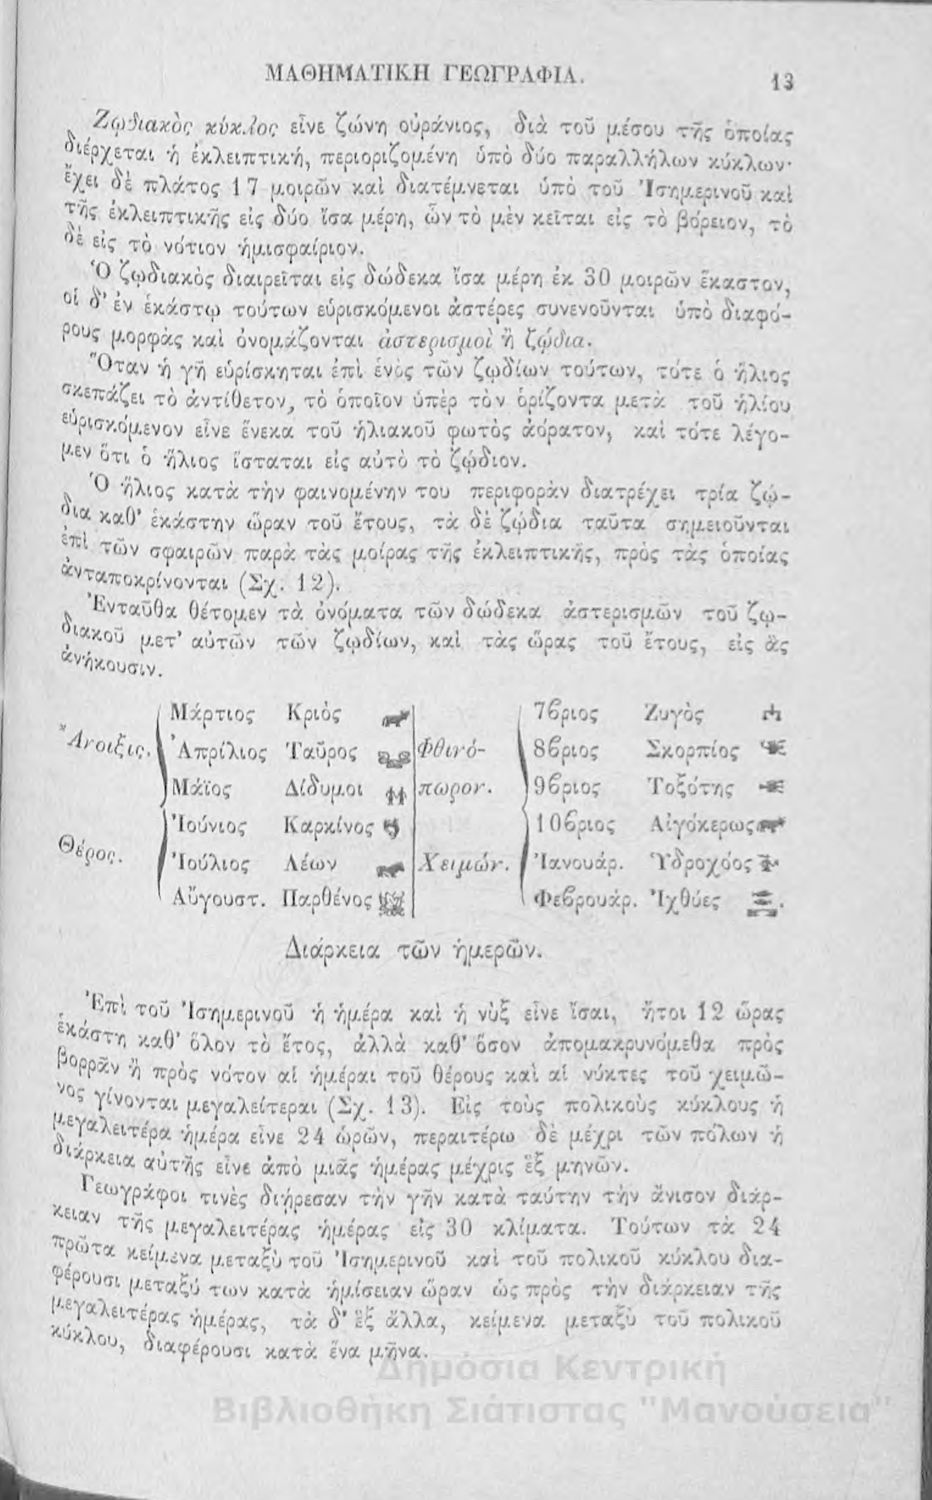 ΜΑΘΗΜΑΤΙΚΗ ΓΕΩΓΡΑΦΙΑ. 13
Ζῳδιακὸς κύκλος εἶνε ζώνη οὐράνιος, διὰ τοῦ μέσου τῆς ὁποίας
διέρχεται ἡ ἐκλειπτική, περιοριζομένη ὑπὸ δύο παραλλήλων κύκλων·
ἔχει δὲ πλάτος 17 μοιρῶν καὶ διατέμνεται ὑπὸ τοῦ Ἰσημερινοῦ καὶ
τῆς ἐκλειπτικῆς εἰς δύο ἴσα μέρη, ὧν τὸ μὲν κεῖται εἰς τὸ βόρειον, τὸ
δὲ εἰς τὸ νότιον ἡμισφαίριον.
Ὁ ζῳδιακὸς διαιρεῖται εἰς δώδεκα ἴσα μέρη ἐκ 30 μοιρῶν ἕκαστον,
οἱ δ' ἐν ἑκάστῳ τούτων εὑρισκόμενοι ἀστέρες συνενοῦνται ὑπὸ διαφό-
ρους μορφὰς καὶ ὀνομάζονται ἀστερισμοὶ ἢ ζῴδια.
Ὅταν ἡ γῆ εὑρίσκηται ἐπὶ ἑνὸς τῶν ζῳδίων τούτων, τότε ὁ ἥλιος
σκεπάζει τὸ ἀντίθετον, τὸ ὁποῖον ὑπὲρ τὸν ὁρίζοντα μετὰ τοῦ ἡλίου
εὑρισκόμενον εἶνε ἕνεκα τοῦ ἡλιακοῦ φωτὸς ἀόρατον, καὶ τότε λέγο-
μεν ὅτι ὁ ἥλιος ἵσταται εἰς αὐτὸ τὸ ζῴδιον.
Ὁ ἥλιος κατὰ τὴν φαινομένην του περιφορὰν διατρέχει τρία ζῴ-
δια καθ' ἑκάστην ὥραν τοῦ ἔτους, τὰ δὲ ζῴδια ταῦτα σημειοῦνται
ἐπὶ τῶν σφαιρῶν παρὰ τὰς μοίρας τῆς ἐκλειπτικῆς, πρὸς τὰς ὁποίας
ἀνταποκρίνονται (Σχ. 12).
Ἐνταῦθα θέτομεν τὰ ὀνόματα τῶν δώδεκα ἀστερισμῶν τοῦ ζῳ-
διακοῦ μετ' αὐτῶν τῶν ζῳδίων, καὶ τὰς ὥρας τοῦ ἔτους, εἰς ἃς
ἀνήκουσιν.
Μάρτιος Κριὸς 7βριος Ζυγὸς
Ἄνοιξις. Ἀπρίλιος Ταῦρος Φθινό- 8βριος Σκορπίος
Μάϊος Δίδυμοι πωρον. 9βριος Τοξότης
Ἰούνιος Καρκίνος 10βριος Αἰγόκερως
Θέρος. Ἰούλιος Λέων Χειμών. Ἰανουάρ. Ὑδροχόος
Αὔγουστ. Παρθένος Φεβρουάρ. Ἰχθύες .
Διάρκεια τῶν ἡμερῶν.
Ἐπὶ τοῦ Ἰσημερινοῦ ἡ ἡμέρα καὶ ἡ νὺξ εἶνε ἴσαι, ἤτοι 12 ὥρας
ἑκάστη καθ' ὅλον τὸ ἔτος, ἀλλὰ καθ' ὅσον ἀπομακρυνόμεθα πρὸς
βορρᾶν ἢ πρὸς νότον αἱ ἡμέραι τοῦ θέρους καὶ αἱ νύκτες τοῦ χειμῶ-
νος γίνονται μεγαλείτεραι (Σχ. 13). Εἰς τοὺς πολικοὺς κύκλους ἡ
μεγαλειτέρα ἡμέρα εἶνε 24 ὡρῶν, περαιτέρω δὲ μέχρι τῶν πόλων ἡ
διάρκεια αὐτῆς εἶνε ἀπὸ μιᾶς ἡμέρας μέχρις ἓξ μηνῶν.
Γεωγράφοι τινὲς διῄρεσαν τὴν γῆν κατὰ ταύτην τὴν ἄνισον διάρ-
κειαν τῆς μεγαλειτέρας ἡμέρας εἰς 30 κλίματα. Τούτων τὰ 24
πρῶτα κείμενα μεταξὺ τοῦ Ἰσημερινοῦ καὶ τοῦ πολικοῦ κύκλου δια-
φέρουσι μεταξύ των κατὰ ἡμίσειαν ὥραν ὡς πρὸς τὴν διάρκειαν τῆς
μεγαλειτέρας ἡμέρας, τὰ δ' ἓξ ἄλλα, κείμενα μεταξὺ τοῦ πολικοῦ
κύκλου, διαφέρουσι κατὰ ἕνα μῆνα.
Δημόσια Κεντρική
Βιβλιοθήκη Σιάτιστας "Μανούσεια"